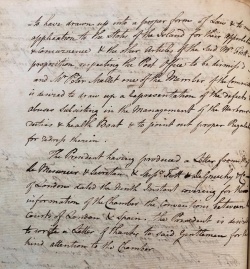 to have drawn up into a proper form of Law &
application to the State of the Island for their
& concurrence & the other Article of the said Mr
proposition respecting the Post Office to be
And Mr Peter Mallet one of the Members of the
is desired to draw up a Representation of the
abuses Subsisting in the Management of the
& Health Boat & to point out proper
for redress therein.
The President having produced a Letter from
le Mesurier & Secretan, &
of London dated the Ninth Instant advising for the
information of the Chamber the Convention between
Courts of London & Spain. The President is
to write a Letter of thanks to said Gentlemen for
kind attention to the Chamber